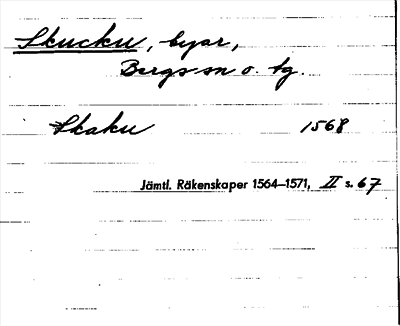 Skucku, byar,
Bergs sn o. tg.
Skaku 1568
Jämtl. Räkenskaper 1564–1571, II s. 67